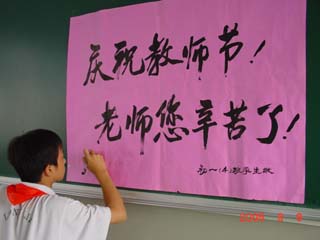 庆祝教师节！
老师您辛苦了！
初一(4)班学生献